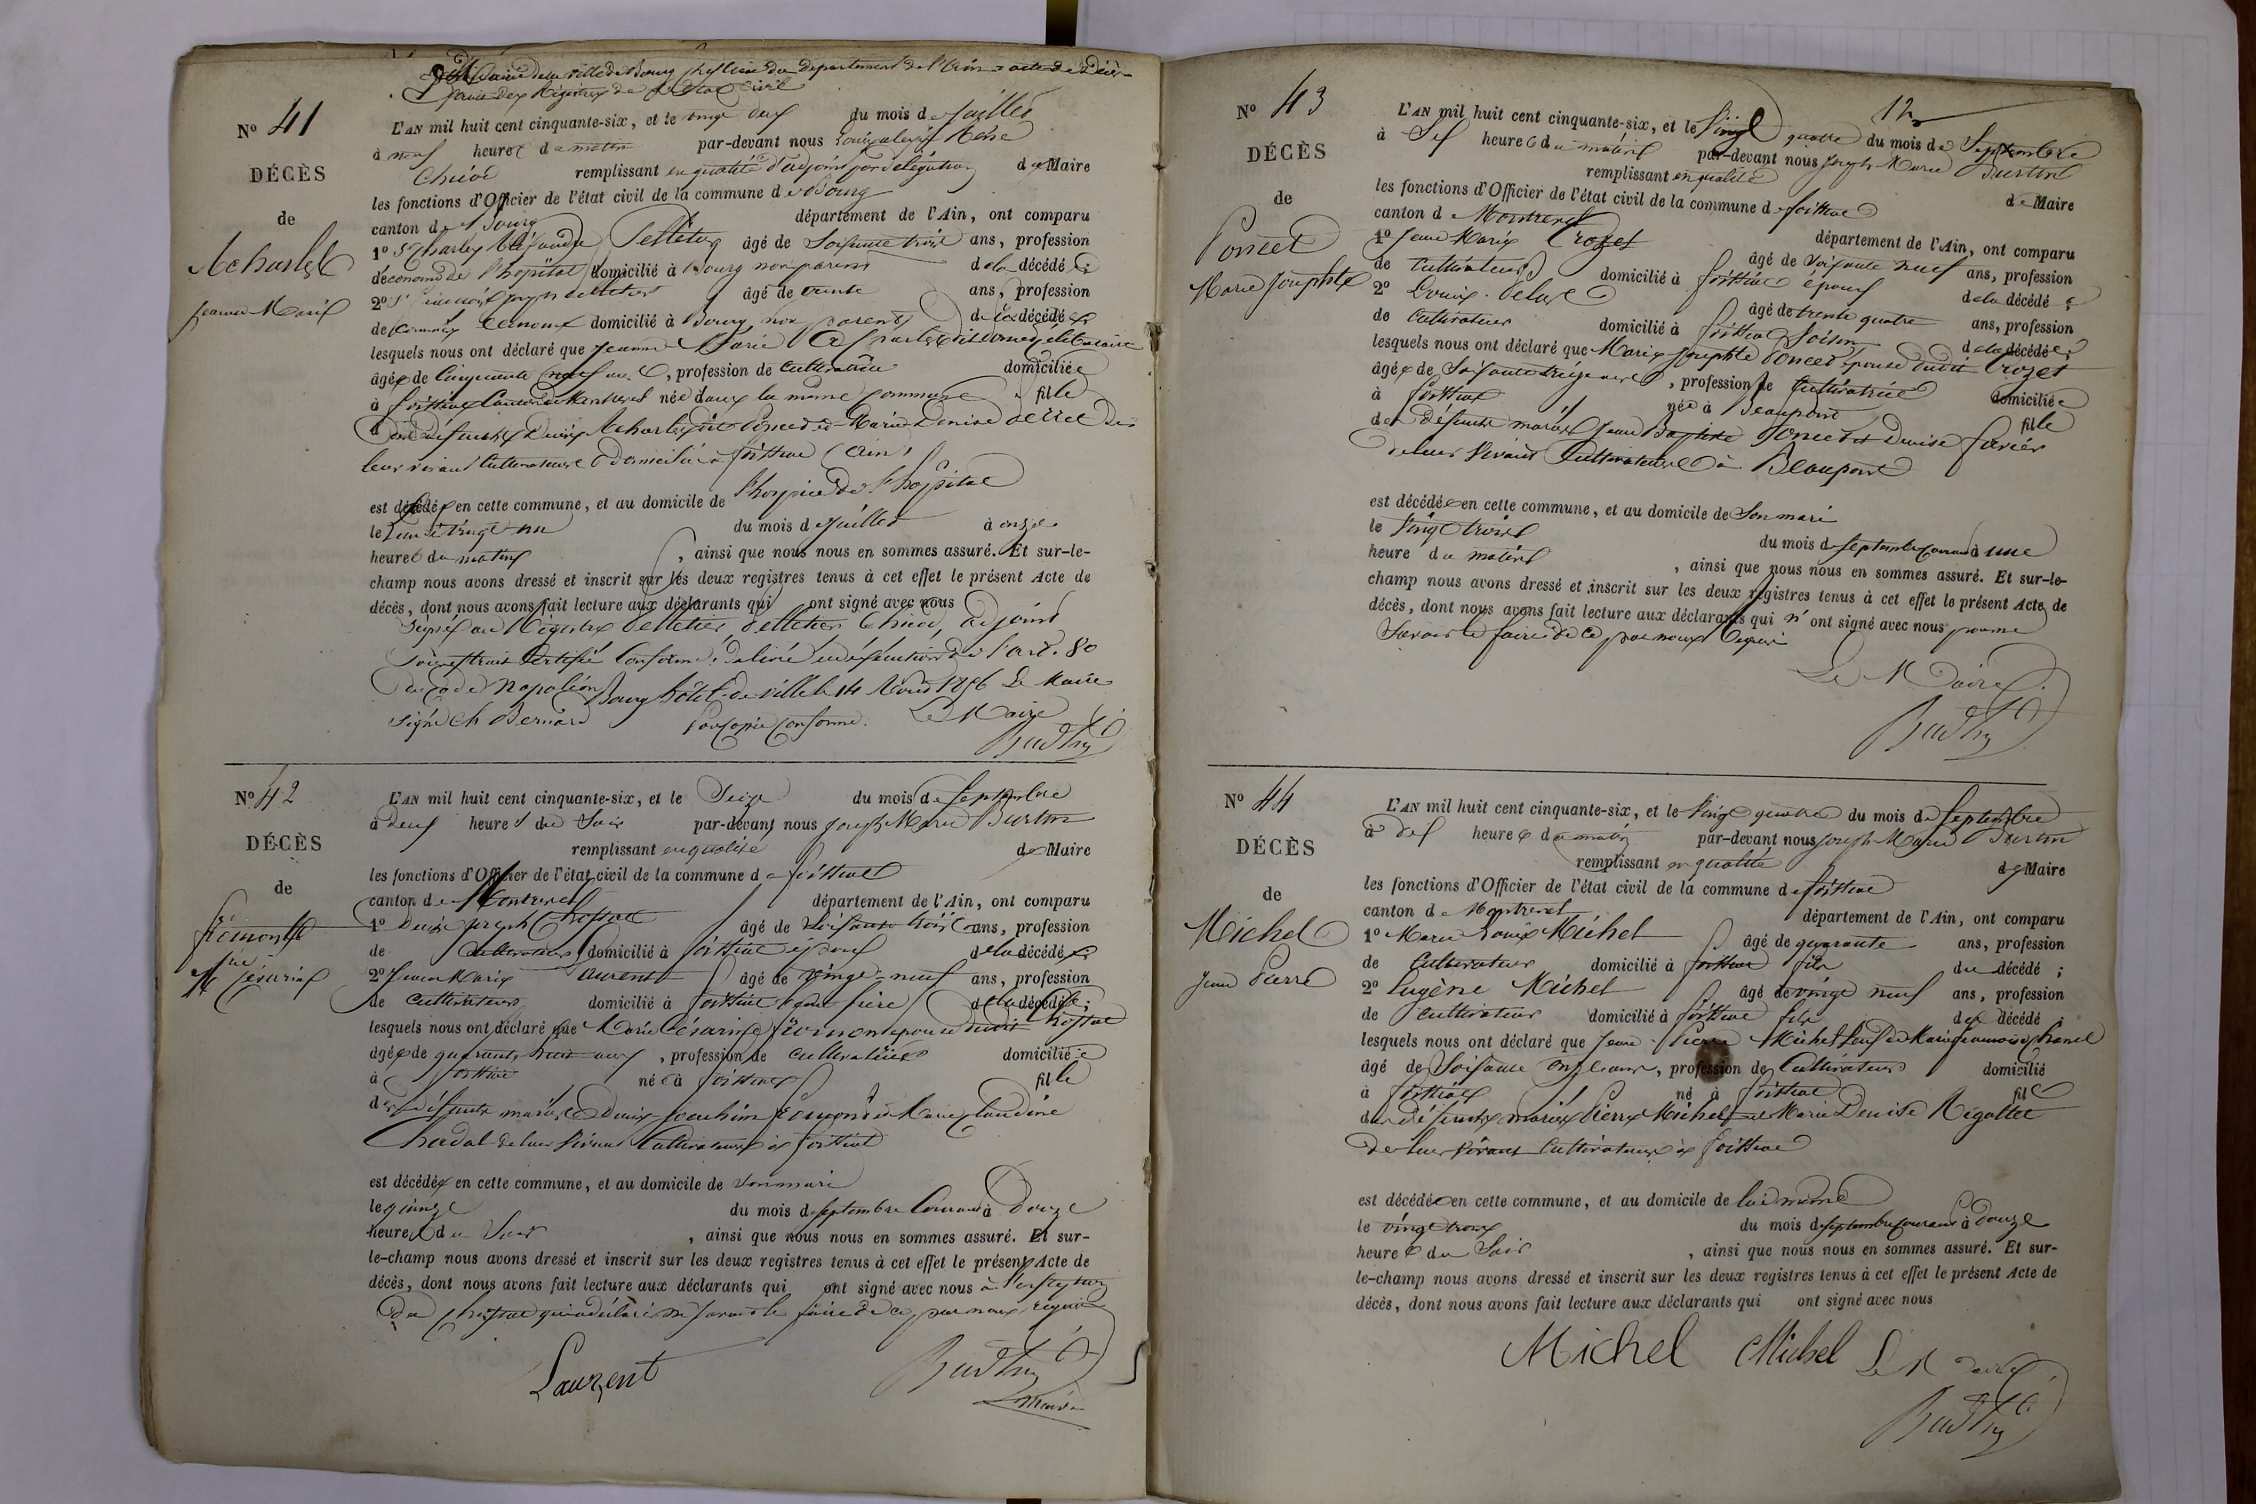 Mairie de la ville de Bourg chef lieu du département de l'Ain acte de Décès
Extrait des Registres de l'Etat Civil
N° 41
DÉCÈS
de
Jeanne Marie
L'AN mil huit cent cinquante-six, et le vingt deux du mois de Juillet
à neuf heures du matin par-devant nous
remplissant en qualité d'adjoint par délégation de Maire
les fonctions d'Officier de l'état civil de la commune de Bourg
canton de Bourg département de l'Ain, ont comparu
1° Sr Charles Alexandre Pelletier âgé de Soixante trois ans, profession
d'économe de l'hopital domicilié à Bourg non parent de la décédée ;
2° Sr Joseph Pelletier âgé de trente ans, profession
de Commis Econome domicilié à Bourg non parent de la décédée
lesquels nous ont déclaré que Jeanne Marie célibataire
âgée de Cinquante neuf ans, profession de Cultivatrice domiciliée
à Foissiat Canton de Montrevel née dans la même commune fille
des défunts Denis et Marie Denise
leur vivant Cultivateurs domiciliés à Foissiat (Ain)
est décédée en cette commune, et au domicile de l'hospice de l'hopital
le Lundi vingt un du mois de Juillet à onze
heures du matin, ainsi que nous nous en sommes assuré. Et sur-le-
champ nous avons dressé et inscrit sur les deux registres tenus à cet effet le présent Acte de
décès, dont nous avons fait lecture aux déclarants qui ont signé avec nous
Signé au Registre Pelletier Pelletier adjoint
Pour extrait Certifié Conforme délivré en exécution de l'art. 80
du code Napoléon Bourg hôtel de ville le 1856 Le Maire
Signé Ch Bernard Pour copie conforme. Le Maire
N° 42
DÉCÈS
de
Césarine
L'AN mil huit cent cinquante-six, et le Seize du mois de Septembre
à deux heures du Soir par-devant nous Joseph Marie Burtin
remplissant en qualité de Maire
les fonctions d'Officier de l'état civil de la commune de Foissiat
canton de Montrevel département de l'Ain, ont comparu
1° Denis Joseph âgé de Soixante trois ans, profession
de Cultivateur domicilié à Foissiat époux de la décédée
2° Jean Marie Laurent âgé de vingt-neuf ans, profession
de Cultivateur domicilié à Foissiat de la décédée ;
lesquels nous ont déclaré que Marie Césarine épouse dudit
âgée de quarante ans, profession de Cultivatrice domiciliée
à Foissiat née à Foissiat fille
des défunts mariés Denis Joachim et Marie Claudine
Chadal de leur vivant Cultivateurs à Foissiat
est décédée en cette commune, et au domicile de Son mari
le quinze du mois de Septembre Courant à Douze
heures du Soir, ainsi que nous nous en sommes assuré. Et sur-
le-champ nous avons dressé et inscrit sur les deux registres tenus à cet effet le présent Acte de
décès, dont nous avons fait lecture aux déclarants qui ont signé avec nous à l'exception
de qui a déclaré ne savoir le faire de ce par nous requis
Laurent
Maire
12
N° 43
DÉCÈS
de
Poncet
Marie Josephte
L'AN mil huit cent cinquante-six, et le Vingt quatre du mois de Septembre
à Six heures du matin par-devant nous Joseph Marie Burtin
remplissant en qualité de Maire
les fonctions d'Officier de l'état civil de la commune de Foissiat
canton de Montrevel département de l'Ain, ont comparu
1° Jean Marie Crozet âgé de Soixante neuf ans, profession
de Cultivateur domicilié à Foissiat époux de la décédée ;
2° Louis âgé de trente quatre ans, profession
de Cultivateur domicilié à Foissiat Voisin de la décédée ;
lesquels nous ont déclaré que Marie Josephte Poncet épouse dudit Crozet
âgée de Soixante treize ans, profession de Cultivatrice domiciliée
à Foissiat née à Beaupont fille
des défunts mariés Jean Baptiste Poncet et Denise
de leur vivant Cultivateurs à Beaupont
est décédée en cette commune, et au domicile de Son mari
le Vingt trois du mois de Septembre Courant à une
heure du matin, ainsi que nous nous en sommes assuré. Et sur-le-
champ nous avons dressé et inscrit sur les deux registres tenus à cet effet le présent Acte de
décès, dont nous avons fait lecture aux déclarants qui n'ont signé avec nous pour ne
Savoir le faire de ce par nous requis
Le Maire
N° 44
DÉCÈS
de
Michel
Jean Pierre
L'AN mil huit cent cinquante-six, et le Vingt quatre du mois de Septembre
à dix heures du matin par-devant nous Joseph Marie Burtin
remplissant en qualité de Maire
les fonctions d'Officier de l'état civil de la commune de Foissiat
canton de Montrevel département de l'Ain, ont comparu
1° Marie Louis Michel âgé de quarante ans, profession
de Cultivateur domicilié à Foissiat fils du décédé ;
2° Eugène Michel âgé de vingt neuf ans, profession
de Cultivateur domicilié à Foissiat fils du décédé ;
lesquels nous ont déclaré que Jean Pierre Michel Veuf de Marie Françoise
âgé de Soixante onze ans, profession de Cultivateur domicilié
à Foissiat né à Foissiat fils
des défunts mariés Pierre Michel et Marie Denise
de leur vivant Cultivateurs à Foissiat
est décédé en cette commune, et au domicile de lui même
le vingt trois du mois de Septembre courant à Douze
heures du Soir, ainsi que nous nous en sommes assuré. Et sur-
le-champ nous avons dressé et inscrit sur les deux registres tenus à cet effet le présent Acte de
décès, dont nous avons fait lecture aux déclarants qui ont signé avec nous
Michel Michel Le Maire